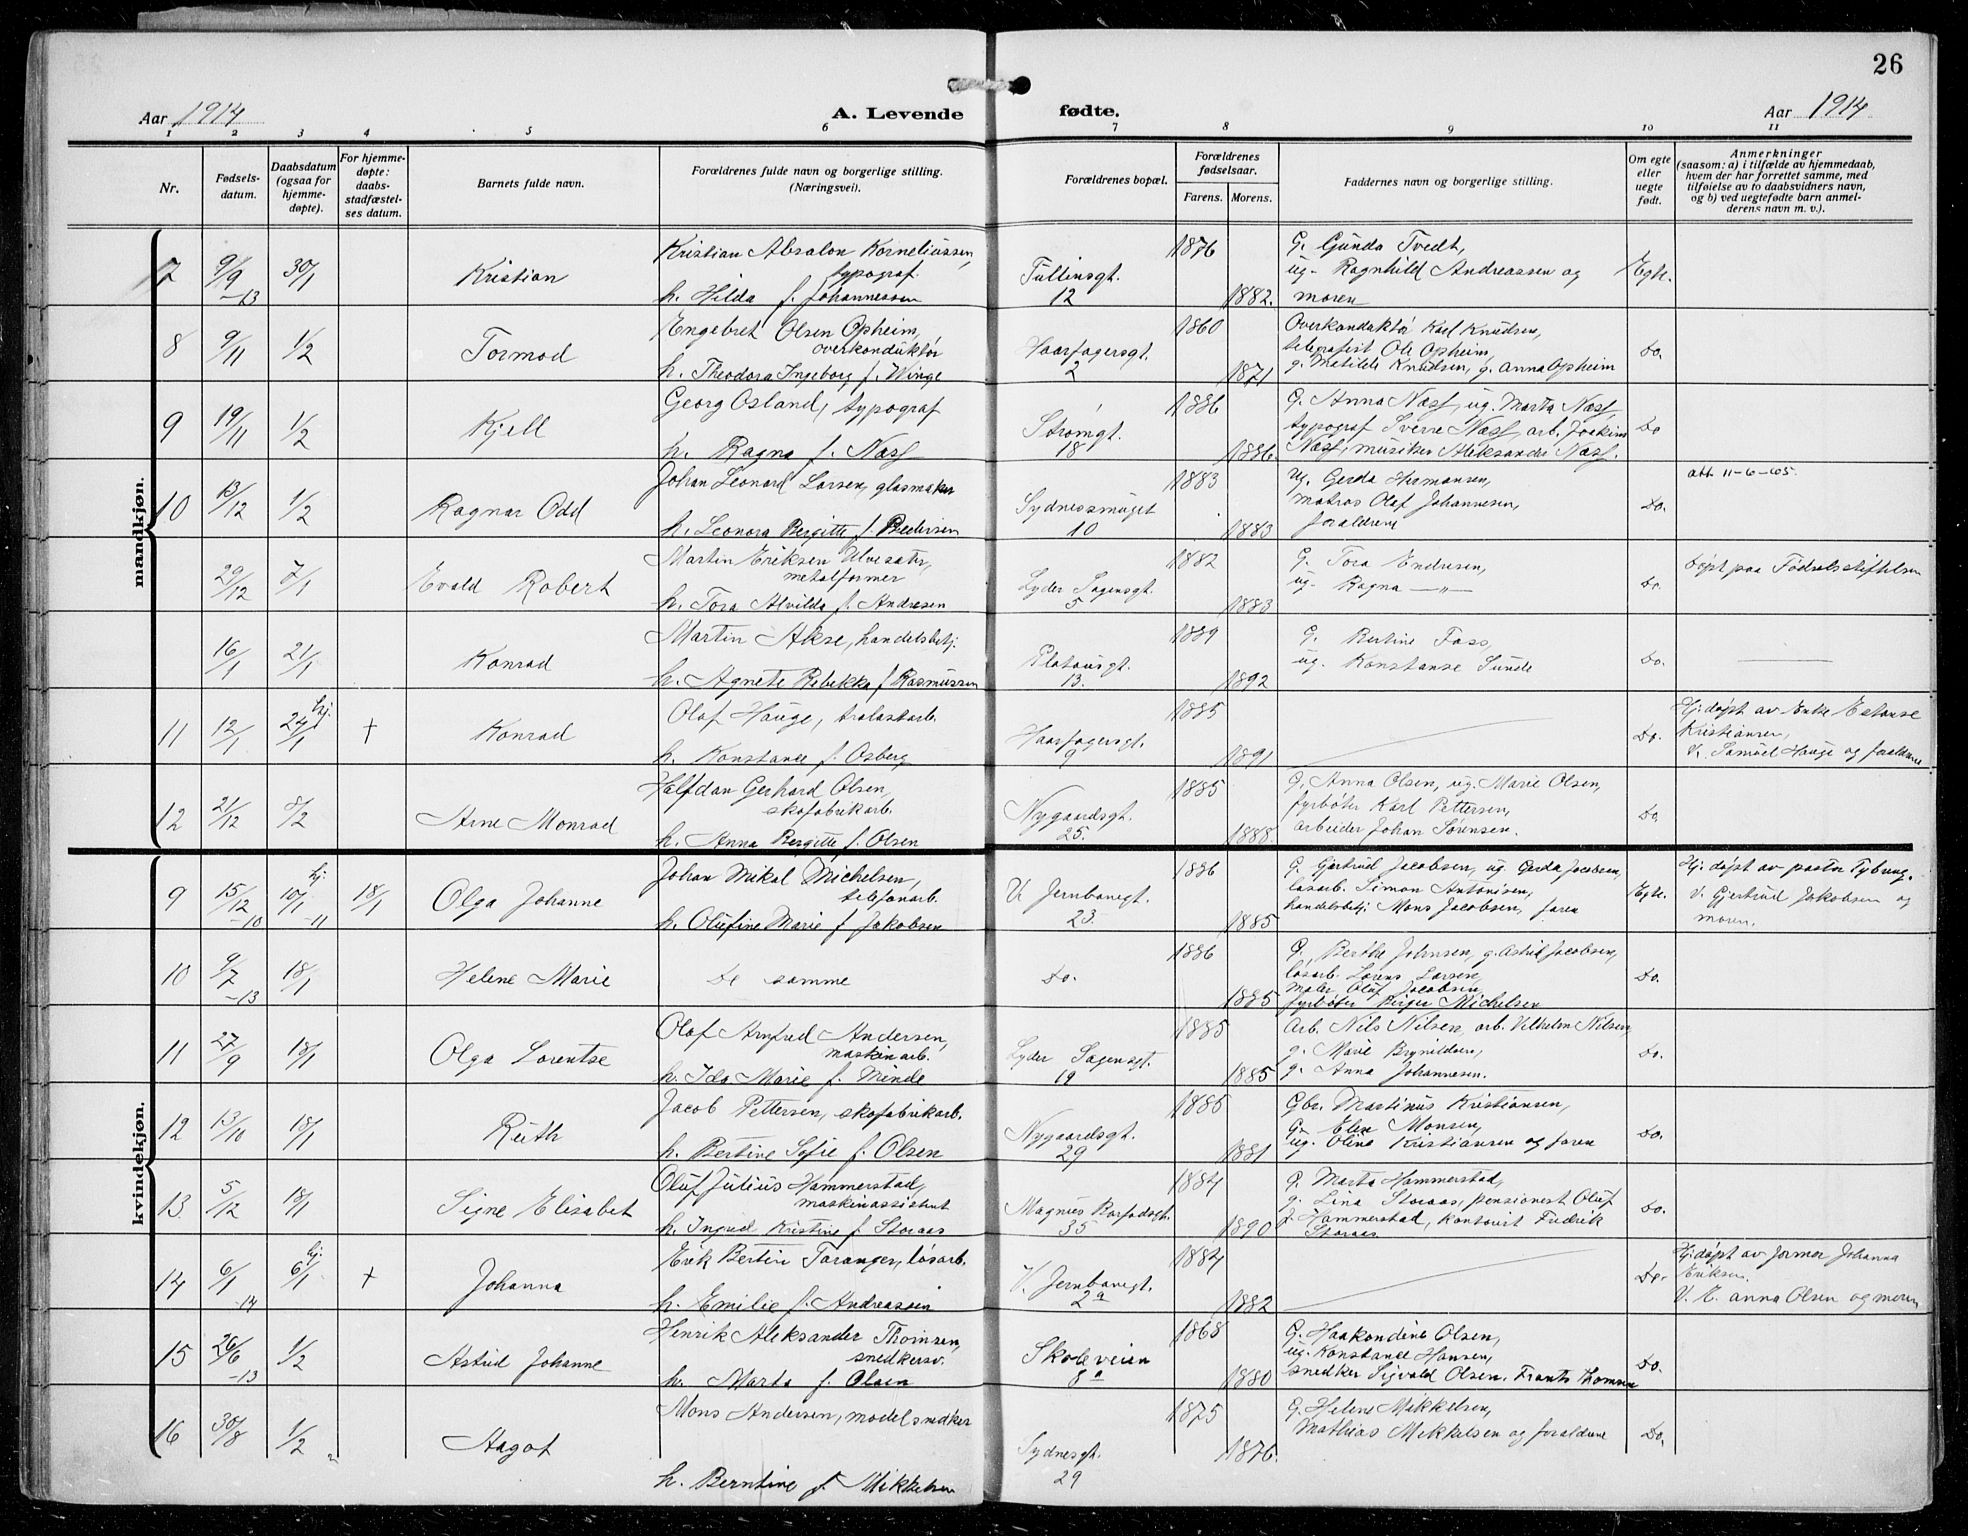 26
Aar 1914
A. Levende fødte.
Aar 1914
1 2 3 4 5 6 7 8 9 10 11
Nr.
Fødsels-
datum.
Daabsdatum
(ogsaa for
hjemme-
døpte).
For hjemme-
døpte:
daabs-
stadfæstel-
ses datum.
Barnets fulde navn.
Forældrenes fulde navn og borgerlige stilling.
(Næringsvei).
Forældrenes bopæl.
Forældrenes
fødselsaar.
Farens. Morens.
Faddernes navn og borgerlige stilling.
Om egte
eller
uegte
født.
Anmerkninger
(saasom: a) i tilfælde av hjemmedaab,
hvem der har forrettet samme, med
tilføielse av to daabsvidners navn,
og b) ved uegtefødte barn anmel-
derens navn m. v.).
mandkjøn.
7 9/9 -13 30/1 Kristian
Kristian Absalon Korneliussen,
typograf
h. Hilda f. Johannessen
Tullinsgt.
12
1876
1882.
G. Gunda Tvedt,
ug. Ragnhild Andreassen og
moren
Egte.
8 9/11 1/2 Tormod
Engebret Olsen Opheim,
overkonduktør
h. Theodora Ingeborg f. Winge
Haarfagersgt.
2
1860
1871
Overkonduktør Karl Knudsen,
telegrafist Ole Opheim,
g. Matilde Knudsen, g. Anna Opheim
Do.
9 19/11 1/2 Kjell
Georg Osland, typograf
h. Ragna f. Næss
Strømgt.
18
1886
1886.
G. Anna Næss, ug. Marta Næss,
typograf Sverre Næss, arb. Joakim
Næss, musiker Aleksander Næss.
Do
10 13/12 1/2 Ragnar Odd
Johan Leonard Larsen, glasmaker
h. Leonora Bergitte f. Pedersen
Sydnessmuget
10
1883
1883
Ug. Gerda Hermansen,
matros Olaf Johannesen,
forældrene
Do.
att. 11-6-65.
29/12 7/1 Evald Robert
Martin Eriksen Ulvesæter,
metalformer
h. Tora Alvilda f. Andresen
Lyder Sagensgt.
5
1882
1883
G. Tora Andresen,
ug. Ragna —"—
Do.
Døpt paa Fødselsstiftelsen
16/1 21/1 Konrad
Martin Akse, handelsbetj.
h. Agnete Rebekka f. Rasmussen
Platousgt.
13.
1889
1892
G. Bertine Foss,
ug. Konstanse Sunde
Do.
11 12/1 hj. 24/1 † Konrad
Olaf Hauge, trelastarb.
h. Konstance f. Osberg
Haarfagersgt.
9
1885
1891
Do.
Hj. døpt av Enke
Kristiansen,
V. Samuel Hauge og forældrene
12 21/12 8/2 Arne Monrad
Halfdan Gerhard Olsen,
skofabrikarb.
h. Anna Bergitte f. Olsen
Nygaardsgt.
25.
1885
1888.
G. Anna Olsen, ug. Marie Olsen,
fyrbøter Karl Pettersen,
arbeider Johan Sørensen.
Do
kvindekjøn.
9 15/12 -10 hj. 10/1 -11 18/1 Olga Johanne
Johan Mikal Michelsen,
telefonarb.
h. Olufine Marie f. Jakobsen
V. Jernbanegt.
23.
1886
1885
G. Gertrud Jacobsen, ug. Gerda Jacobsen,
løsarb. Simon Antonisen,
handelsbetj. Mons Jacobsen, faren
Egte.
Hj. døpt av pastor Tybring.
V. Gjertrud Jakobsen og
moren.
10 9/7 -13 18/1 Helene Marie
De samme
Do.
1886
1885
G. Berthe Johnsen, g. Astrid Jacobsen,
løsarb. Lorens Larsen,
Maler Oluf Jacobsen,
fyrbøter Birger Michelsen
Do.
11 27/9 18/1 Olga Lorentse
Olaf Arnfred Andersen,
maskinarb.
h. Ida Marie f. Minde
Lyder Sagensgt.
19
1885
1885
Arb. Nils Nilsen, arb. Vilhelm Nilsen,
g. Marie Brynildsen,
g. Anna Johannesen.
Do.
12 13/10 18/1 Ruth
Jacob Pettersen, skofabrikarb.
h. Bertine Sofie f. Olsen
Nygaardsgt.
29
1885
1881
Gbr. Martinus Kristiansen,
G. Elen Monsen,
ug. Olina Kristiansen og faren
Do.
13 5/12 18/1 Signe Elisabet
Oluf Julius Hammerstad,
maskinassistent
h. Ingrid Kristine f. Storaas
Magnus Barfodsgt.
35
1884
1890
G. Marta Hammerstad,
g. Lina Storaas, pensionist Oluf
J. Hammerstad, kontorist Fredrik
Storaas
Do.
14 6/1 -14 hj. 6/1 † Johanna
Erik Bertin Taranger, løsarb.
h. Emilie f. Andreassen
V. Jernbanegt.
2a
1884
1882
Do.
Hj. døpt av formor Johanna
Eriksen.
V. E. Anna Olsen og moren
15 26/6 -13 1/2 Astrid Johanne
Henrik Aleksander Thomsen,
snedkersv.
h. Marta f. Olsen
Skoleveien
8a
1868
1880
G. Haakondine Olsen,
ug. Konstance Hansen,
snedker Sigvald Olsen, Frants Thomsen
Do.
16 30/8 1/2 Aagot
Mons Andersen, modelsnedker
h. Berntine f. Mikkelsen
Sydnesgt.
29
1875
1876.
G. Helene Mikkelsen,
Mathias Mikkelsen og forældrene
Do.